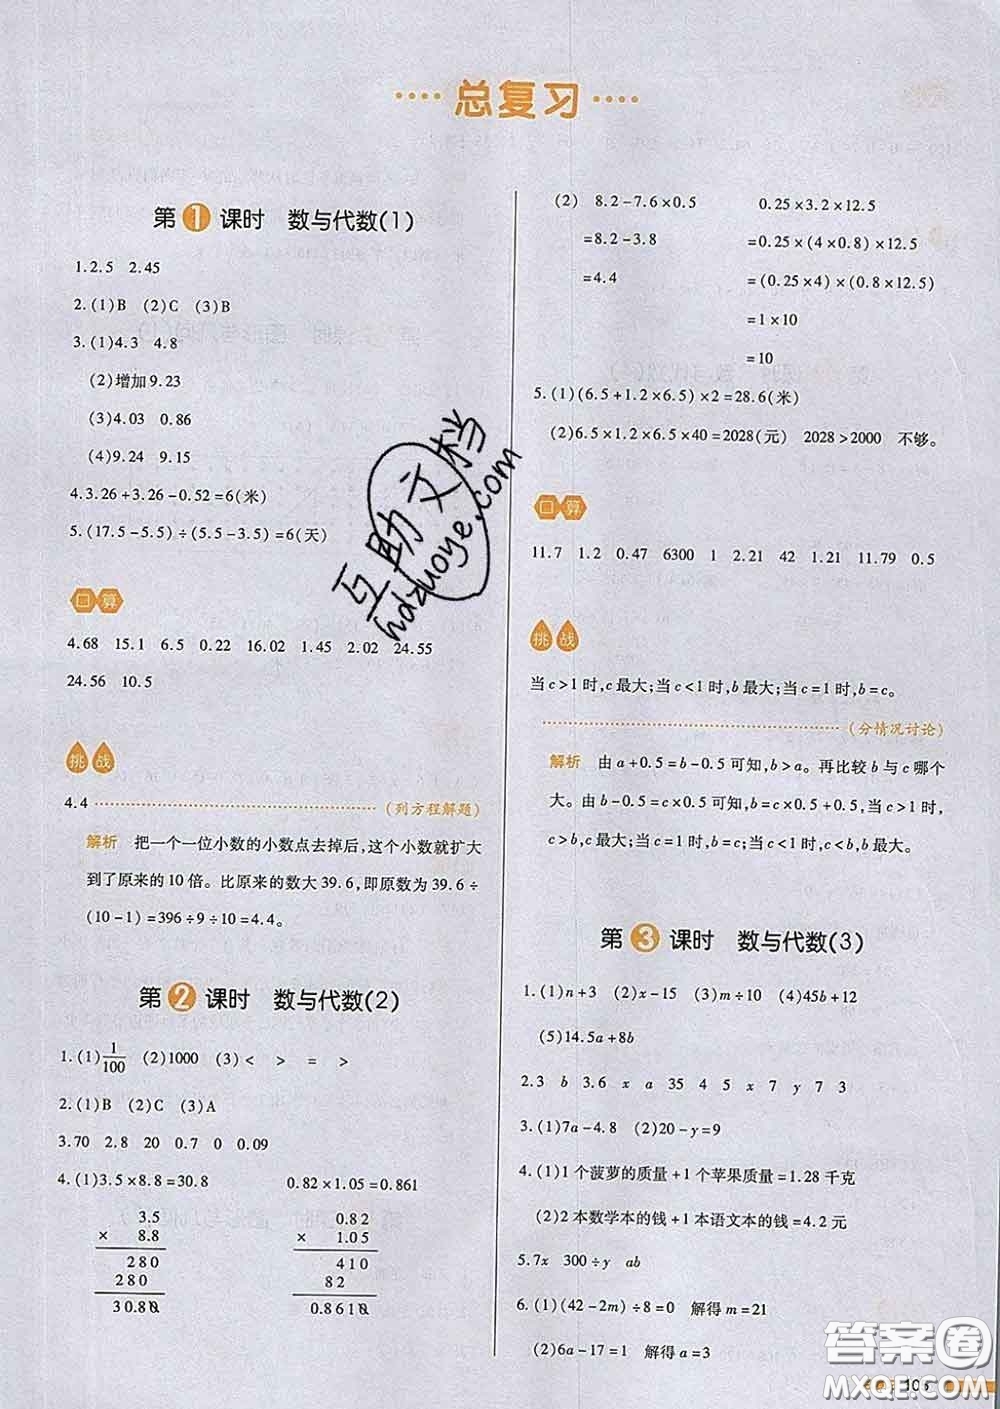 ····总复习····
第1课时 数与代数(1)
1.2.5 2.45
2.(1)B (2)C (3)B
3.(1)4.3 4.8
(2)增加9.23
(3)4.03 0.86
(4)9.24 9.15
4.3.26+3.26-0.52=6(米)
5.(17.5-5.5)÷(5.5-3.5)=6(天)
口算
4.68 15.1 6.5 0.22 16.02 1.45 2.02 24.55
24.56 10.5
挑战
4.4 (列方程解题)
解析 把一个一位小数的小数点去掉后,这个小数就扩大
到了原来的10倍。比原来的数大39.6,即原数为39.6÷
(10-1)=396÷9÷10=4.4。
第2课时 数与代数(2)
1.(1)1/100 (2)1000 (3)< > = >
2.(1)B (2)C (3)A
3.70 2.8 20 0.7 0 0.09
4.(1)3.5×8.8=30.8 0.82×1.05=0.861
3.5 0.82
× 8.8 × 1.05
280 410
280 82
30.80 0.8610
(2) 8.2-7.6×0.5 0.25×3.2×12.5
=8.2-3.8 =0.25×(4×0.8)×12.5
=4.4 =(0.25×4)×(0.8×12.5)
=1×10
=10
5.(1)(6.5+1.2×6.5)×2=28.6(米)
(2)6.5×1.2×6.5×40=2028(元) 2028>2000 不够。
口算
11.7 1.2 0.47 6300 1 2.21 42 1.21 11.79 0.5
挑战
当c>1时,c最大;当c<1时,b最大;当c=1时,b=c。
(分情况讨论)
解析 由a+0.5=b-0.5可知,b>a。再比较b与c哪个
大。由b-0.5=c×0.5可知,b=c×0.5+0.5,当c>1时,
c>b,c最大;当c=1时,b=c;当c<1时,c<b,b最大。
第3课时 数与代数(3)
1.(1)n+3 (2)x-15 (3)m÷10 (4)45b+12
(5)14.5a+8b
2.3 b 3.6 x a 35 4 5 x 7 y 7 3
3.(1)7a-4.8 (2)20-y=9
4.(1)1个菠萝的质量+1个苹果质量=1.28千克
(2)2本数学本的钱+1本语文本的钱=4.2元
5.7x 300÷y ab
6.(1)(42-2m)÷8=0 解得m=21
(2)6a-17=1 解得a=3
互助文档
hdzuoye.com
答案圈
MXQE.COM
103